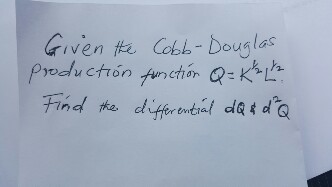 Given the Cobb-Douglas
production function Q = K^½ L^½.
Find the differential dQ & d²Q